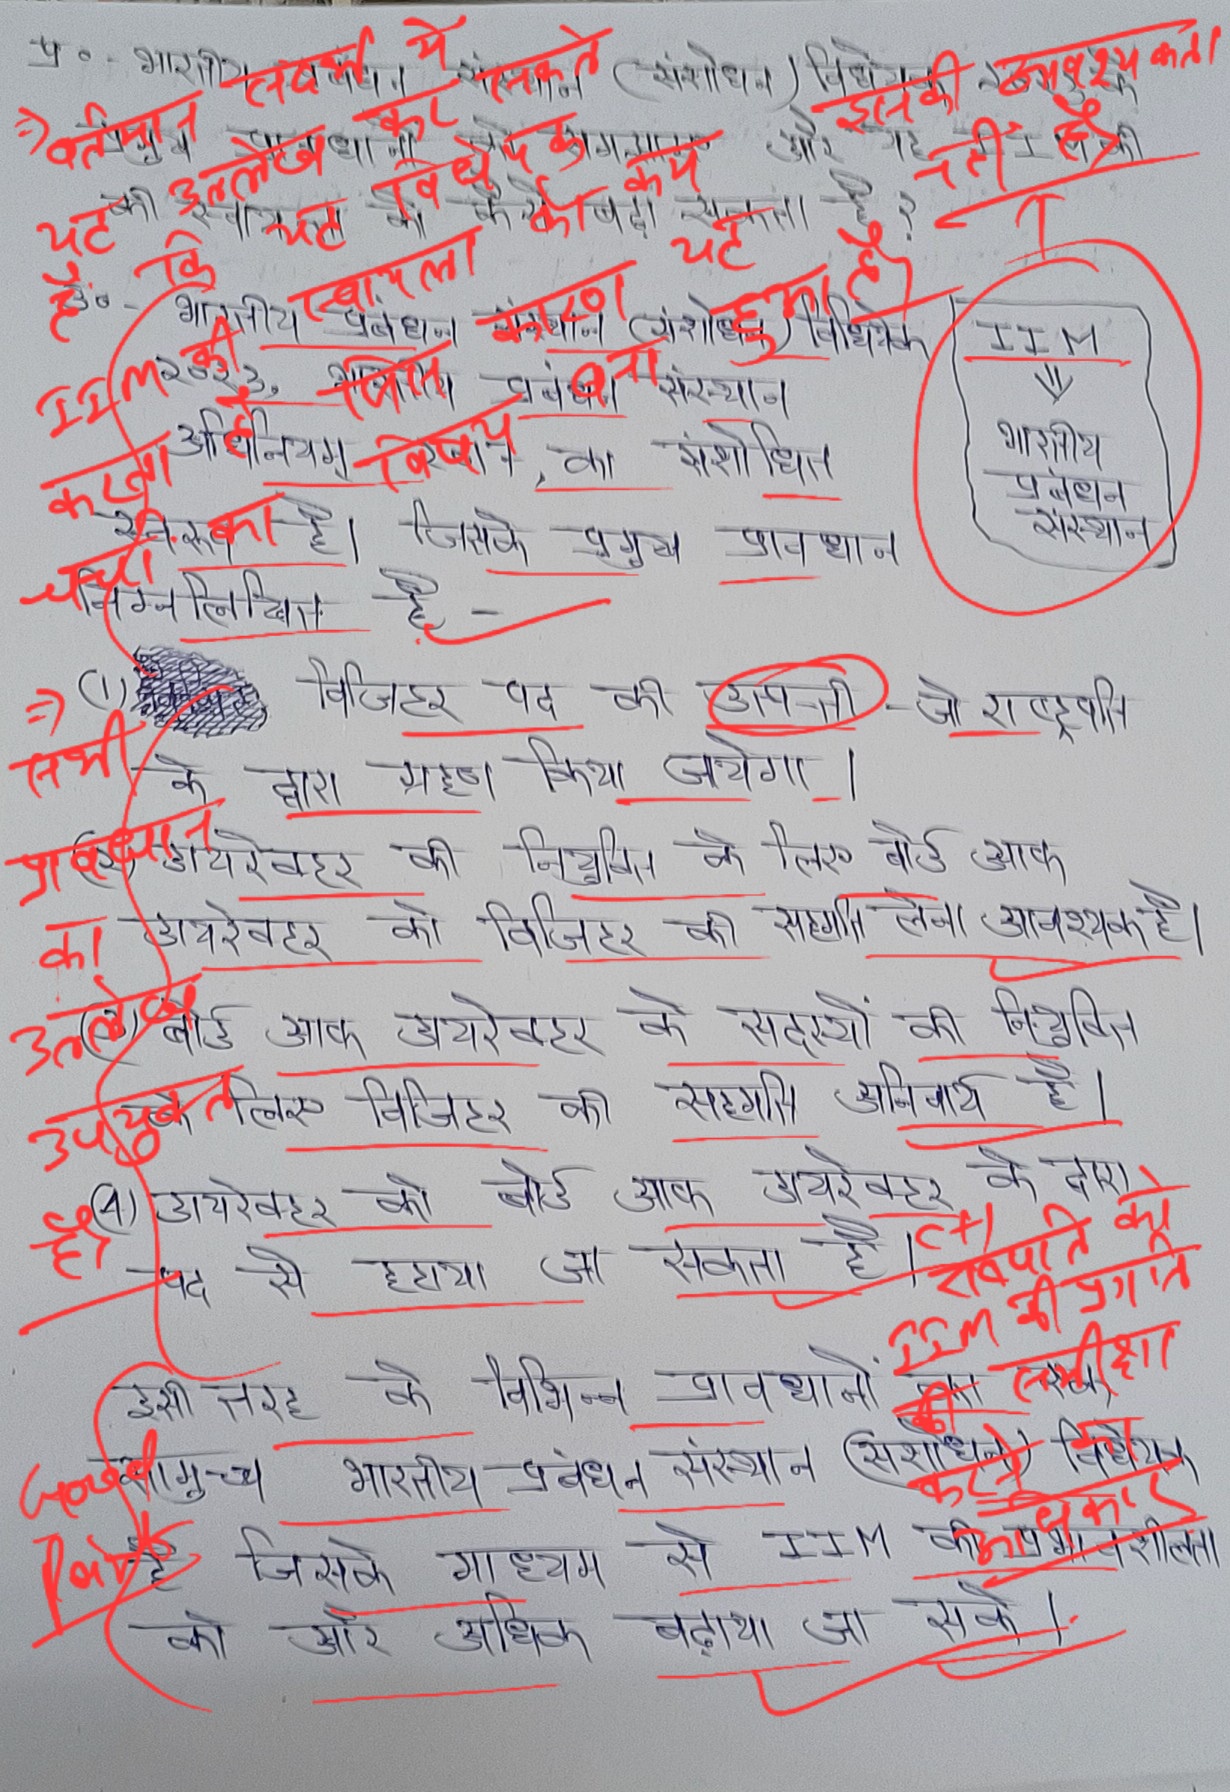 प्र०- भारतीय प्रबंधन संस्थान (संशोधन) विधेयक
प्रमुख और यह IIM की
की स्वायत्ता को कैसे बढ़ा सकता है?
उ०- भारतीय प्रबंधन संस्थान (संशोधन) विधेयक
२०२३, भारतीय प्रबंधन संस्थान
अधिनियम, का संशोधित
स्वरूप है। जिसके प्रमुख प्रावधान
निम्नलिखित है -
IIM
⇓
भारतीय
प्रबंधन
संस्थान
⇒ वर्तमान संदर्भ में इसकी आवश्यकता
उल्लेख कर सकते नहीं है।
यह विधेयक
है कि यह स्वायत्ता को कम
IIM की कारण यह
करता है जिस हुआ है।
चर्चा का विषय बना
(1) विजिटर पद की उत्पत्ती - जो राष्ट्रपति
के द्वारा ग्रहण किया जायेगा।
(2) डायरेक्टर की नियुक्ति के लिए बोर्ड आफ
डायरेक्टर को विजिटर की सहमति लेना आवश्यक है।
(3) बोर्ड आफ डायरेक्टर के सदस्यों की नियुक्ति
के लिए विजिटर की सहमति अनिवार्य है।
(4) डायरेक्टर को बोर्ड आफ डायरेक्टर के द्वारा
पद से हटाया जा सकता है।
⇒ सभी
प्रावधान
का
उल्लेख
उपयुक्त
है।
(+)
राष्ट्रपति को
IIM की प्रगति
की समीक्षा
करने का
अधिकार
इसी तरह के विभिन्न प्रावधानों का
सामुच्य भारतीय प्रबंधन संस्थान (संशोधन) विधेयक
है जिसके माध्यम से IIM की प्रभावशीलता
को और अधिक बढ़ाया जा सके।
Good
Point